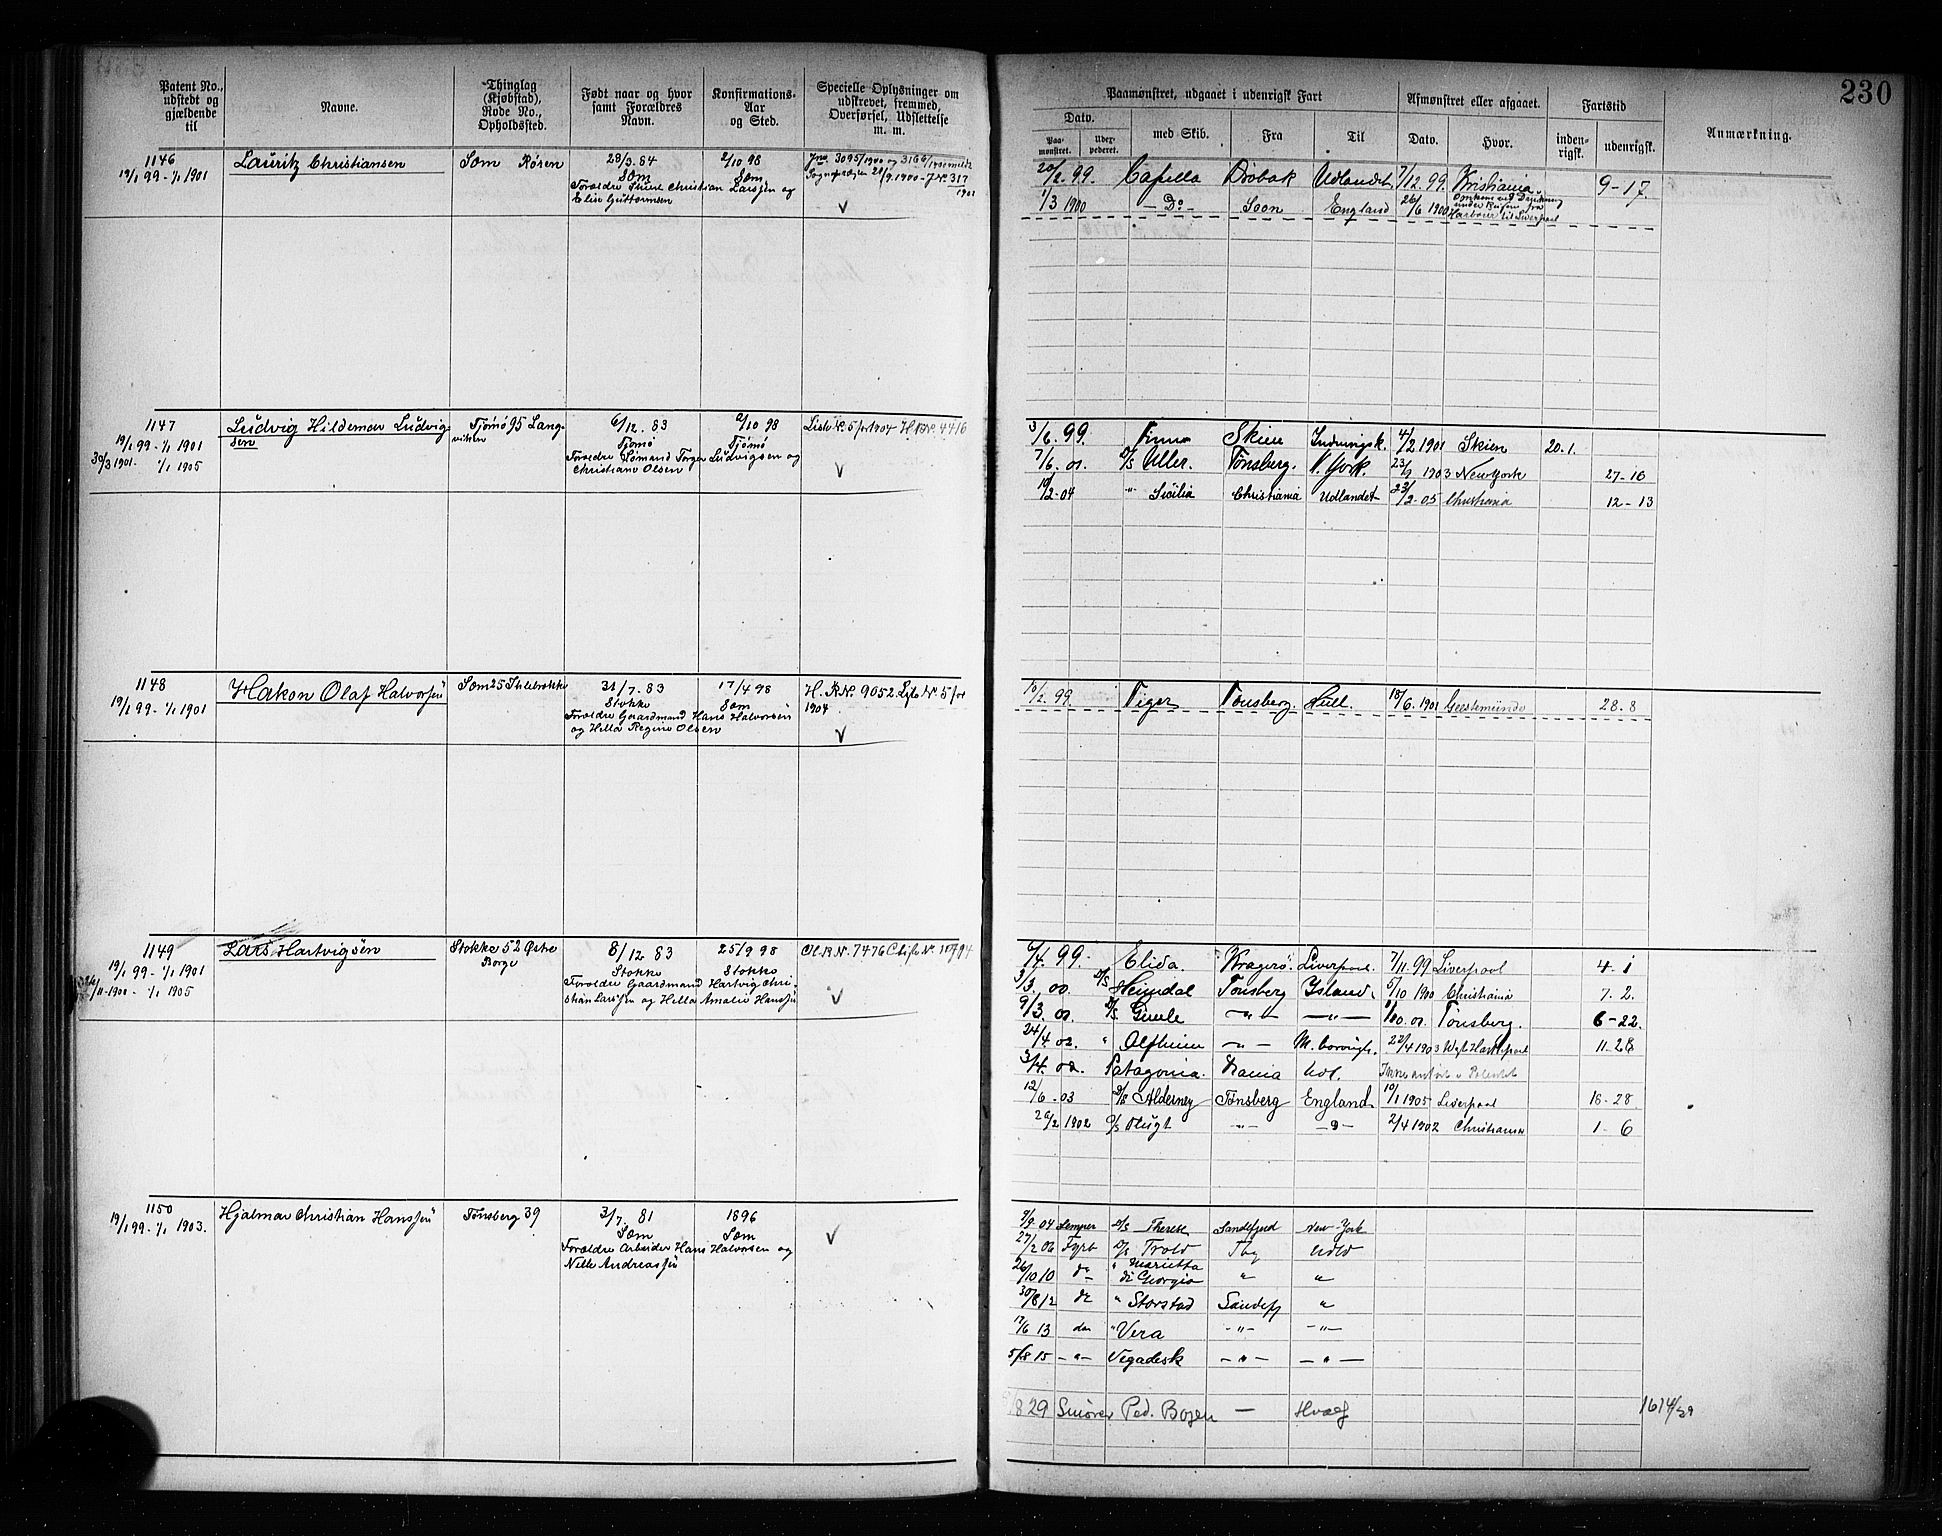 230
Patent No., udstedt og gjældende til
Navne.
Thinglag (Kjøbstad), Rode No., Opholdssted.
Født naar og hvor samt Forældres Navn.
Konfirmations- Aar og Sted.
Specielle Oplysninger om udskrevet, fremmed, Overførsel, Udslettelse m. m.
Paamønstret, udgaaet i udenrigsk Fart
Dato.
Paa- mønstret.
Uder- pederet.
med Skib.
Fra
Til
Afmønstret eller afgaaet.
Dato.
Hvor.
Fartstid
inden- rigsk.
udenrigsk.
Anmærkning.
1146
19/1 99 - 1/1 1901
Lauritz Christiansen
Sem Røsen
28/3. 84
Sem
Forældre Christian Larssen og
Elise Guttormsen
2/10 98
Sem
Jno. 3095/1900 og
1901
V
20/2. 99. Capella Drøbak Udlandet 7/12. 99. Kristiania. 9-17.
1/3 1900 - Do - Soon England 26/6 1900 Omkom ved Drukning
under Reisen fra
Harbour til Liverpool
1147
19/1 99 - 1/1 1901
30/3 1901. - 1/1 1905
Ludvig Hildemar Ludvig-
sen
Tjømø 95 Lang-
vikten
6/12. 83
Tjømø
Forældre Sømand Torger Ludvigsen og
Christiane Olsen
2/10 98
Tjømø
Liste No. 5 for 1904 H.R.No. 4416
V
3/6. 99. Skien Indenrigsk. 4/2 1901 Skien 20.1.
7/6. 01. D/S Uller. Tønsberg. N. York. 23/1 1903 New York 27-16
10/2-04 " Sicilia Christiania Udlandet 23/2-05 Christiania 12-13
1148
19/1 99 - 1/1 1901
Hakon Olaf Halvorsen
Sem 25
31/7. 83
Stokke
Forældre Gaardmand Hans Halvorsen
og Hella Regine Olsen
17/4 98
Sem
H. R No. 9052 Liste No. 5 for
1904
V
10/2. 99. Tiger Tønsberg. Hull. 18/6. 1901 Geestemünde 28.8
1149
19/1 99 - 1/1 1901
/11-1900 - 1/1 1905
Lars Hartvigsen
Stokke 52 Østre
Borge
8/12. 83
Stokke
Forældre Gaardmand Hartvig Chri-
stian Larssen og Hella Amalie Hanssen
25/9 98
Stokke
H.R No. 7476
V
6/4. 99. Elida. Kragerø. Liverpool. 7/11. 99 Liverpool 4-1
3/3. 00. D/S Heimdal Tønsberg Island. 5/10 1900 Christiania 7.2.
9/3. 01. D/S Gimle - " - - " - 01. Tønsberg. 6-22.
24/4. 02. " Alfheim - " - M.borough. 22/4 1903 11-28
3/4. 02. Patagonia. Udl.
12/6-03 D/S Alderney Tønsberg England. 10/1 1905 Liverpool 16-28
2/4 1902 Christiania 1-6
1150
19/1 99 - 1/1 1903.
Hjalmar Christian Hanssen
Tønsberg 39
3/7. 81
Sem
Forældre Arbeider Hans Halvorsen og
Nille Andreassen
1896
Sem
V
04 Lemper D/S Therese Sandefjord New-York
27/2 06 Fyrb D/S Trold Tbg Udld
26/10 10 do " Marietta
di Giorgio " "
30/8 12 do " Storstad Sandefj "
17/6 13 do " Vera - " - - " -
5/8 15 - " - Vegadesk - " - - " -
/8 29 Smører Ped. Bogen - Hvalf
1614/29